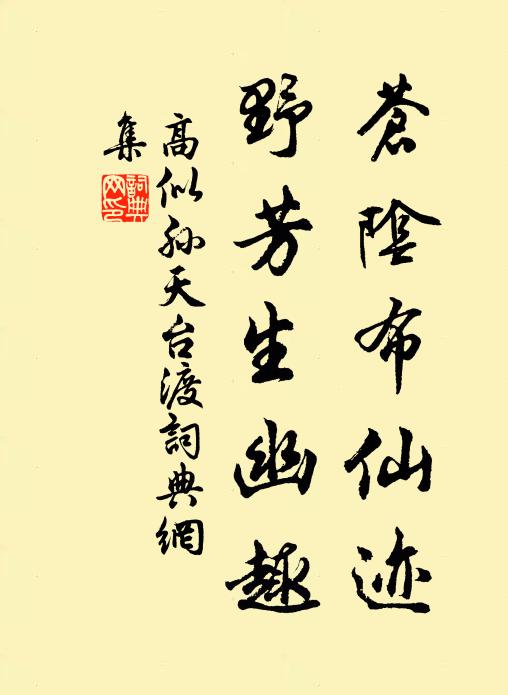 蒼陰布仙迹
野芳生幽趣
高似孙天台渡詞典網
集
詞典網印